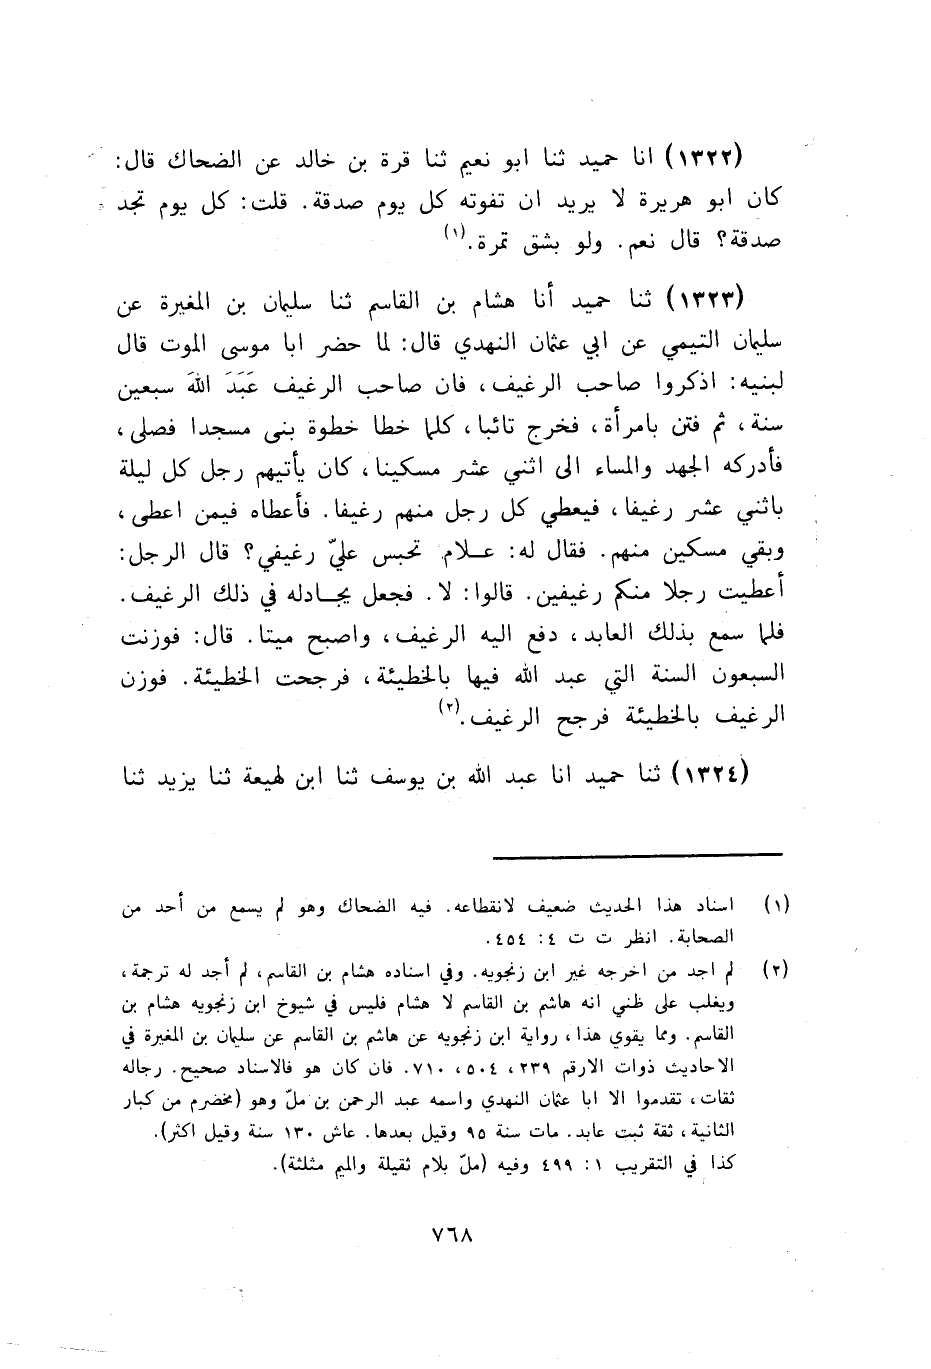 (١٣٢٢) انا حميد ثنا ابو نعيم ثنا قرة بن خالد عن الضحاك قال:
كان ابو هريرة لا يريد ان تفوته كل يوم صدقة. قلت: كل يوم تجد
صدقة؟ قال نعم. ولو بشق تمرة.(١)
(١٣٢٣) ثنا حميد أنا هشام بن القاسم ثنا سليمان بن المغيرة عن
سليمان التيمي عن ابي عثمان النهدي قال: لما حضر ابا موسى الموت قال
لبنيه: اذكروا صاحب الرغيف، فان صاحب الرغيف عَبَدَ اللهَ سبعين
سنة، ثم فتن بامرأة، فخرج تائبا، كلما خطا خطوة بنى مسجدا فصلى،
فأدركه الجهد والمساء الى اثني عشر مسكينا، كان يأتيهم رجل كل ليلة
باثني عشر رغيفا، فيعطي كل رجل منهم رغيفا. فأعطاه فيمن اعطى،
وبقي مسكين منهم. فقال له: عــلام تحبس عليّ رغيفي؟ قال الرجل:
أعطيت رجلا منكم رغيفين. قالوا: لا. فجعل يجــادله في ذلك الرغيف.
فلما سمع بذلك العابد، دفع اليه الرغيف، واصبح ميتا. قال: فوزنت
السبعون السنة التي عبد الله فيها بالخطيئة، فرجحت الخطيئة. فوزن
الرغيف بالخطيئة فرجح الرغيف.(٢)
(١٣٢٤) ثنا حميد انا عبد الله بن يوسف ثنا ابن لهيعة ثنا يزيد ثنا
(١) اسناد هذا الحديث ضعيف لانقطاعه. فيه الضحاك وهو لم يسمع من أحد من
الصحابة. انظر ت ت ٤: ٤٥٤.
(٢) لم اجد من اخرجه غير ابن زنجويه. وفي اسناده هشام بن القاسم، لم أجد له ترجمة،
ويغلب على ظني انه هاشم بن القاسم لا هشام فليس في شيوخ ابن زنجويه هشام بن
القاسم. ومما يقوي هذا، رواية ابن زنجويه عن هاشم بن القاسم عن سليمان بن المغيرة في
الاحاديث ذوات الارقم ٢٣٩، ٥٠٤، ٧١٠. فان كان هو فالاسناد صحيح. رجاله
ثقات، تقدموا الا ابا عثمان النهدي واسمه عبد الرحمن بن ملّ وهو (مخضرم من كبار
الثانية، ثقة ثبت عابد. مات سنة ٩٥ وقيل بعدها. عاش ١٣٠ سنة وقيل اكثر).
كذا في التقريب ١: ٤٩٩ وفيه (ملّ بلام ثقيلة والميم مثلثة).
٧٦٨